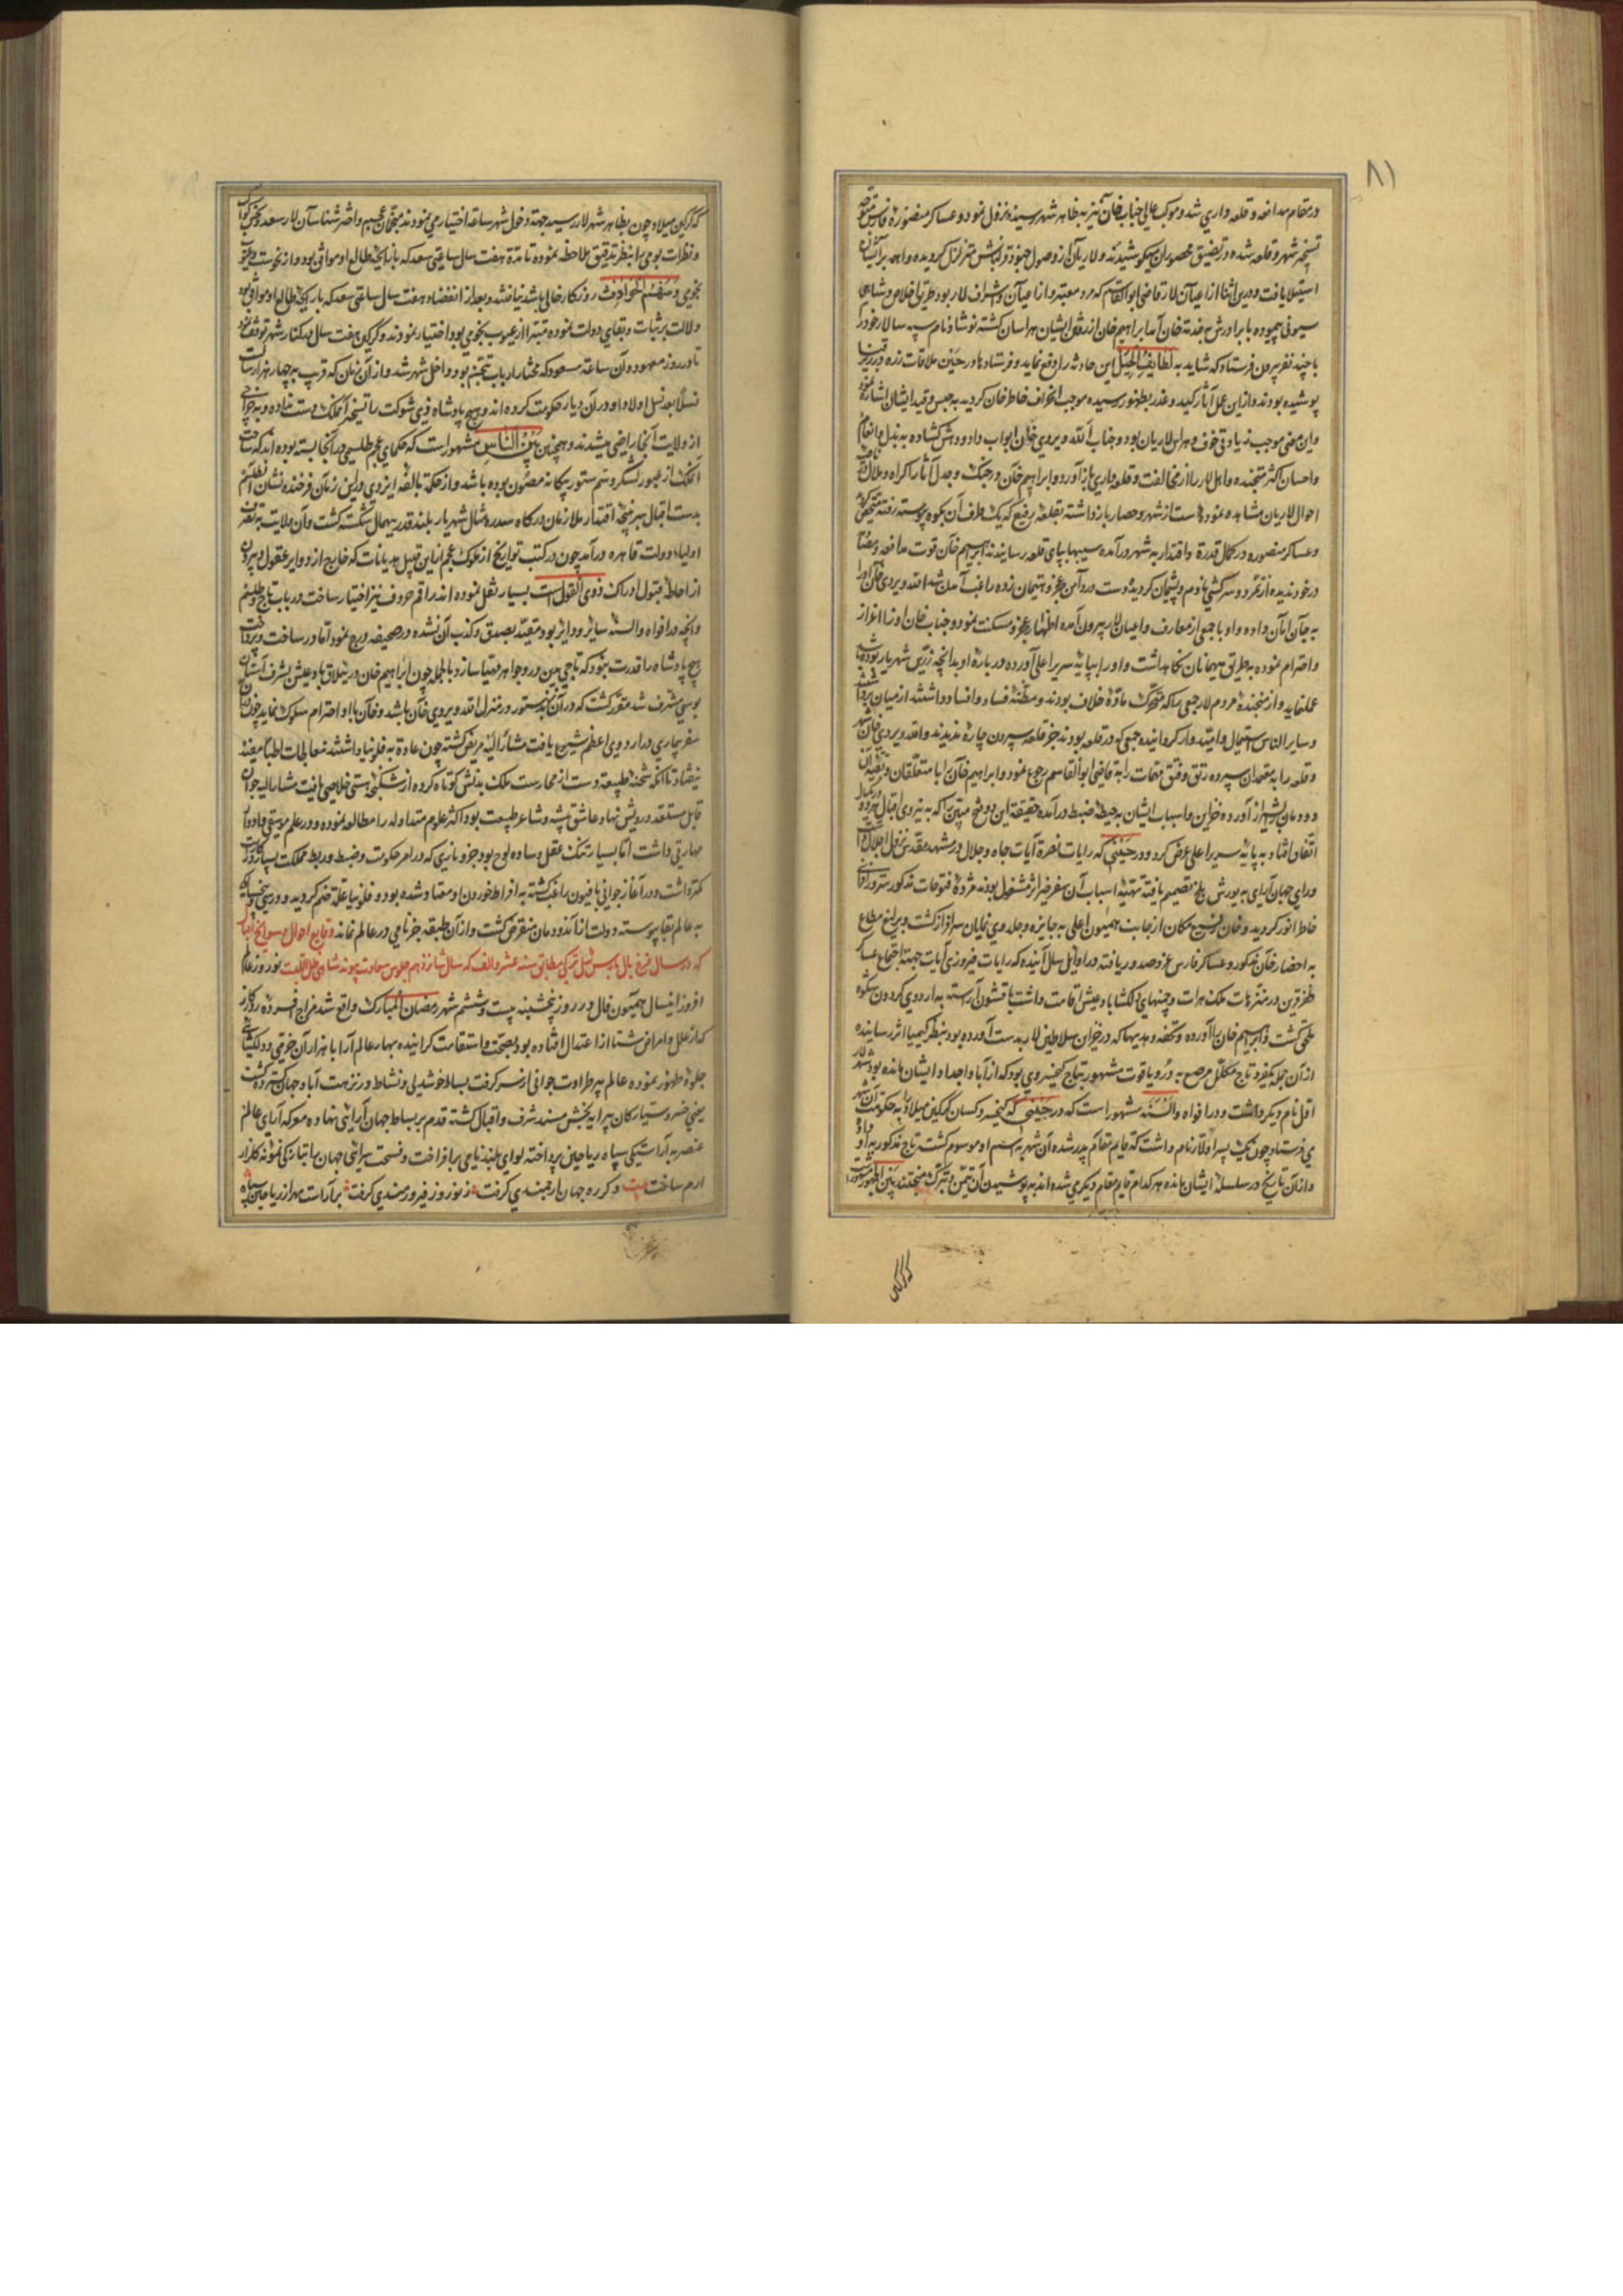 ۸۱
در مقام مدافعه و قلعه داری شد و موکب عالی جناب خان نیز به ظاهر شهر رسیده نزول نمود و عساکر منصوره فارس متوجه
تسخیر شهر و قلعه شده در تضییق محصوران میکوشیدند و لاریان از وصول جنود متزلزل گردیده واهمه بر ایشان
استیلا یافت و درین اثنا از اعیان لار قاضی ابوالقاسم که مرد معتبر و از اعیان و اشراف لار بود طریق اخلاص و شاهی
سیونی پیموده با برادرش به خدمت خان آمد ابراهیم خان از رفتن ایشان هراسان گشته نوشاد نام سپه سالار خود را
با چند نفر بیرون فرستاد که شاید به لطایف الحیل این حادثه را دفع نماید و فرستاده در حین ملاقات زره در زیر قبا
پوشیده بودند و از این عمل آثار کید و غدر بظهور رسیده موجب انحراف خاطر خان گردید به حبس و قید ایشان اشاره نمود
و این معنی موجب زیادتی خوف و هراس لاریان بود و جناب الله ویردی خان ابواب داد و دهش گشاده به بذل و انعام
و احسان اکثر متجنده و اهل لار را از مخالفت و قلعه داری باز آورد و ابراهیم خان در جنگ و جدل آثار اکراه و ملال
احوال لاریان مشاهده نمود دست از شهر و حصار باز داشته بقلعه رفیع که یک طرف آن بکوه پیوسته رفته متحصن
و عساکر منصوره در کمال قدرت و اقتدار به شهر در آمده سیبها بپای قلعه رسانیدند ابراهیم خان قوت مدافعه
در خود ندیده از تمرد و سرکشی نادم و پشیمان گردیده دست در دامن عجز و پیمان زده راغب آمدن شد الله ویردی خان او را
به جان امان داده و او با جمعی از معارف و اعیان لار بیرون آمده اظهار عجز و مسکنت نمود و جناب خان او را اعزاز
و احترام نموده به طریق مهمانان نگاه داشت و او را بپایه سریر اعلی آورده در باره او بدانچه رای شهریار بوده باشد
عملنماید و از متجنده مردم لار جمعی را که محرک ماده خلاف بودند و مظنه فساد و افساد داشتند از میان برداشته
و سایر الناس استمال و امیدوار گردانیده جمعی که در قلعه بودند جز قلعه سپردن چاره ندیدند و الله ویردی خان شهر
و قلعه را به معتمدان سپرده رتق و فتق مهمات را به قاضی ابوالقاسم رجوع نمود و ابراهیم خان را با متعلقان و بقیه آن
دودمان بشیراز آورده خزاین و اسباب ایشان به حیطه ضبط در آمده حقیقت این دو فتح مبین که به نیروی اقبال
اتفاق افتاد به پایه سریر اعلی عرض کرد و در حینی که رایات نصرة آیات جاه و جلال در مشهد مقدس نزول اجلال داشت
و رای جهان آرای به یورش بلخ تصمیم یافته تهیه اسباب آن سفر ظفر اثر مشغول بودند مژده فتوحات مذکور مسرور افزای
خاطر انور گردید و خان رفیع مکان از جانب همیون اعلی به جایزه و جلدوی نمایان سرافراز گشت و یرلیغ مطاع
به احضار خان مذکور و عساکر فارس عز و صدور یافته در اوایل سال آینده که رایات فیروزی آیات جهة اجتماع عساکر
ظفر قرین در متنزهات ملک هرات و چمنهای دلگشا بادغیش اقامت داشت با قشون آراسته به اردوی گردون شکوه
ملحق گشت و ابراهیم خان را آورده و تحفه و هدیه ها که در خزاین سلاطین لار بدست آورده بود بنظر کیمیا اثر رسانیده
از آن جمله یکفرد تاج مکلل مرصع به در و یاقوت مشهور بتاج کیخسروی بود که از آبا و اجداد ایشان مانده بود شهر لار
اول نام دیگر داشت و در افواه و السنه مشهور است که در حینی که کیخسرو کسان گرگین میلاد را به حکومت آن شهر
می فرستاد چون یک پسر او لار نام داشت که قایم مقام پدر شده آن شهر به اسم او موسوم گشت تاج مذکور به او داد
و از آن تاریخ در سلسله ایشان مانده هر کدام قایم مقام دیگری شده اند به پوشیدن آن تیمن و تبرک میجسته اند بین الجمهور مشهور
که گرگین
که گرگین میلاد چون بظاهر شهر لار رسید جهة دخول شهر ساعة اختیار می نمودند منجمان عجم و اختر شناسان لار سعد و نحس کواکب
و نظرات یومی را بنظر تدقیق ملاحظه نموده تا مدة هفت سال ساعتی سعد که با زایجه طالع او موافق بود و از نحوست
نجومی و سهم الحوادث روزگار خالی باشد نیافتند و بعد از انقضای هفت سال ساعتی سعد که با زایجه طالع او موافق بود
دلالت بر ثبات و بقای دولت نموده مبرا از عیوب نجومی بود اختیار نمودند و گرگین هفت سال در کنار شهر توقف نمود
تا در روز معهود و آن ساعة مسعود که مختار ارباب تنجیم بود داخل شهر شد و از آن زمان که قریب به چهار هزار سالست
نسلا بعد نسل اولاد او در آن دیار حکومت کرده اند و هیچ پادشاه ذی شوکت را تسخیر آن ملک دست نداده و به خراجی
از ولایت آنجا راضی میشدند و همچنین بین الناس مشهور است که حکمای عجم طلسمی در آنجا بسته بوده اند که ساحت
آن ملک از عبور لشکر و سم ستور بیگانه مصئون بوده باشد و از حکمة بالغه ایزدی درین زمان فرخنده نشان آن طلسم
بدست اقبال سرپنجه اقتدار ملازمان درگاه سدره مثال شهریار بلند قدر بیهمال شکسته گشت و آن ولایت به تصرف
اولیاء دولت قاهره درآمد چون در کتب تواریخ از ملوک عجم ازین قبیل هذیانات که خارج از دوایر عقول و بیرون
از احاطه قبول ادراک ذوی العقول است بسیار نقل نموده اند راقم حروف نیز اختیار ساخت در باب تاج و طلسم
و آنچه در افواه و السنه سایر و دایر بود مقید بصدق و کذب آن نشده در صحیفه درج نمود اما در ساخت
هیچ پادشاه را قدرت نبود که تاجی بدین در و جواهر مهیا سازد بالجمله چون ابراهیم خان در ییلاق بادغیش بشرف آستان
بوسی مشرف شد مقرر گشت که در آن یورش بدستور در منزل الله ویردی خان باشد و خان با او احترام سلوک نماید چون
سفر بیماری در اردوی اعظم شیوع یافت مشار الیه مریض گشته چون عادة به فلونیا داشتند معالجات اطبا مفید
نیفتاد تا آنکه شحنه طبیعه دست از ممارست ملک بدنش کوتاه کرده از شکنجه هستی خلاصی یافت مشار الیه جوان
قابل مستعد درویش نهاد و عاشق پیشه و شاعر طبیعت بود اکثر علوم متداوله را مطالعه نموده و در علم موسیقی و ادوار
مهارتی داشت اما بسیار تنک عقل و ساده لوح بود جزو بازی که در امر حکومت و ضبط و ربط مملکت بسیار در کار است
کمتر داشت و در آغاز جوانی بافیون راغب گشته به افراط خوردن او معتاد شده بود و فلونیا علاوه ضم گردید و در سن
به عالم بقا پیوسته دولت از آن دودمان منقرض گشت و از آن طبقه جز نامی در عالم نماند وقایع احوال و سوانح اقبال
که در سال فرخ فال بارس ئیل ترکی مطابق سنه عشر و الف که سال شانزدهم جلوس سعادت پیوند شاهی ظل اللهیست نوروز عالم
افروز اینسال همیون فال در روز پنجشنبه بیست و ششم شهر رمضان المبارک واقع شد مزاج افسرده روزگار
که از علل و امراض شتا از اعتدال افتاده بود بصحت و استقامت گرائیده بهار عالم آرا با هزاران خرمی و دلگشائی
جلوه ظهور نموده عالم پیر طراوت جوانی از سر گرفت بساط خوشدلی و نشاط در نزهت آباد جهان گسترده گشت
یعنی خسرو سیارگان پیرایه بخش مسند شرف و اقبال گشته قدم بر بساط جهان آرائی نهاده معرکه آرای عالم
عنصر به آراستگی سپاه ریاحین پرداخته لوای بلند نامی بر افراخت و فسحت سرای جهان به تازگی نمونه گلزار
ارم ساخت بیت دگر ره جهان ارجمندی گرفت ز نوروز فیروزمندی گرفت بر آراست مهر از ریاحین سپاه